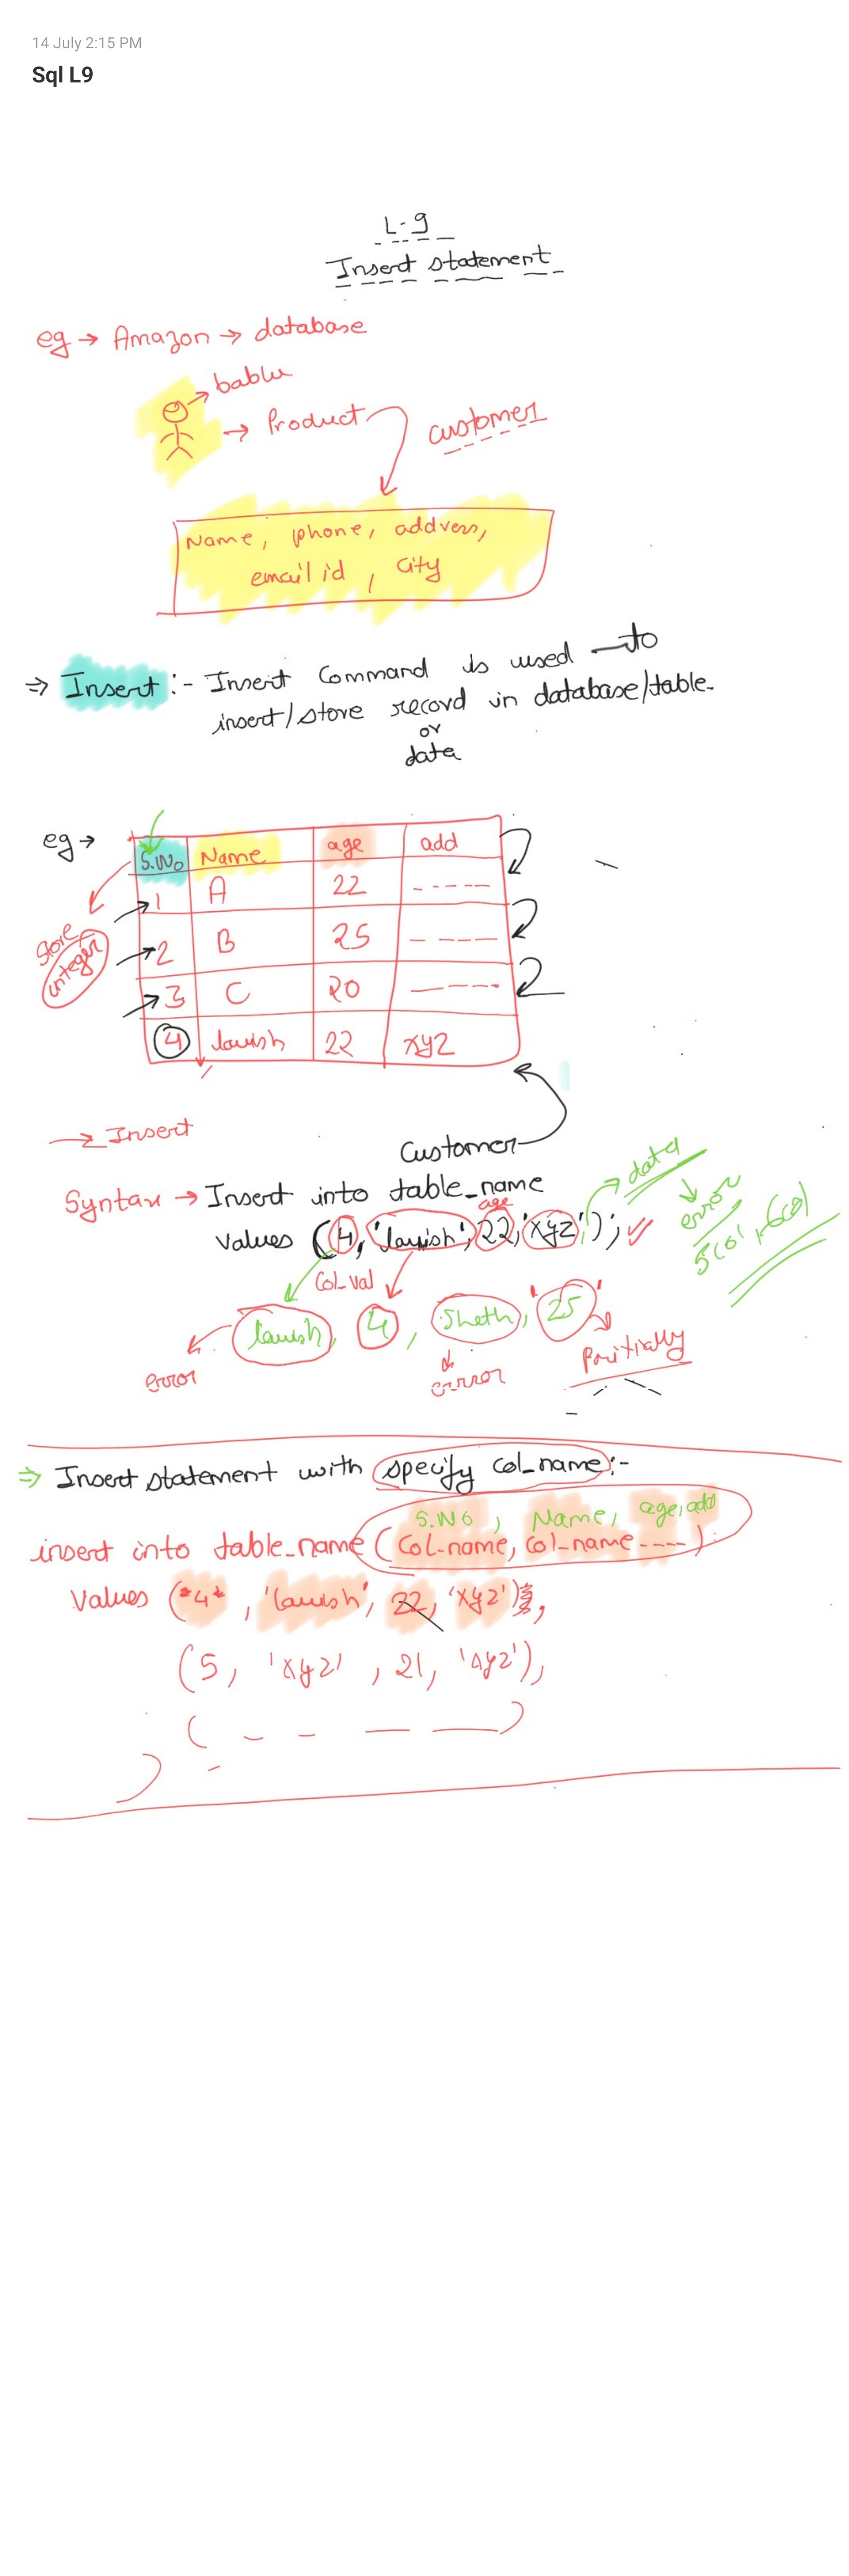 14 July 2:15 PM
Sql L9
L-9
Insert statement
eg → Amazon → database
→ bablu
→ Product
customer
Name, phone, address,
email id, city
⇒ Insert :- Insert Command is used to
insert/store record in database/table.
or
data
eg →
S.No Name age add
1 A 22 -----
2 B 25 ----
3 C 20 -----
4 lavish 22 xyz
store
integer
→ Insert
Customer
Syntax → Insert into table_name
age
values (4, 'lavish', 22, 'xyz');
→ data
error
5col, 6col
Col_val
lavish, 4, Sheth, '25'
error
error
Partially
⇒ Insert statement with specify col_name:-
S.No, Name, age, add
insert into table_name (Col-name, Col-name ----)
Values (4, 'lavish', 22, 'xyz'),
(5, 'xyz', 21, 'xyz'),
( - - — — )